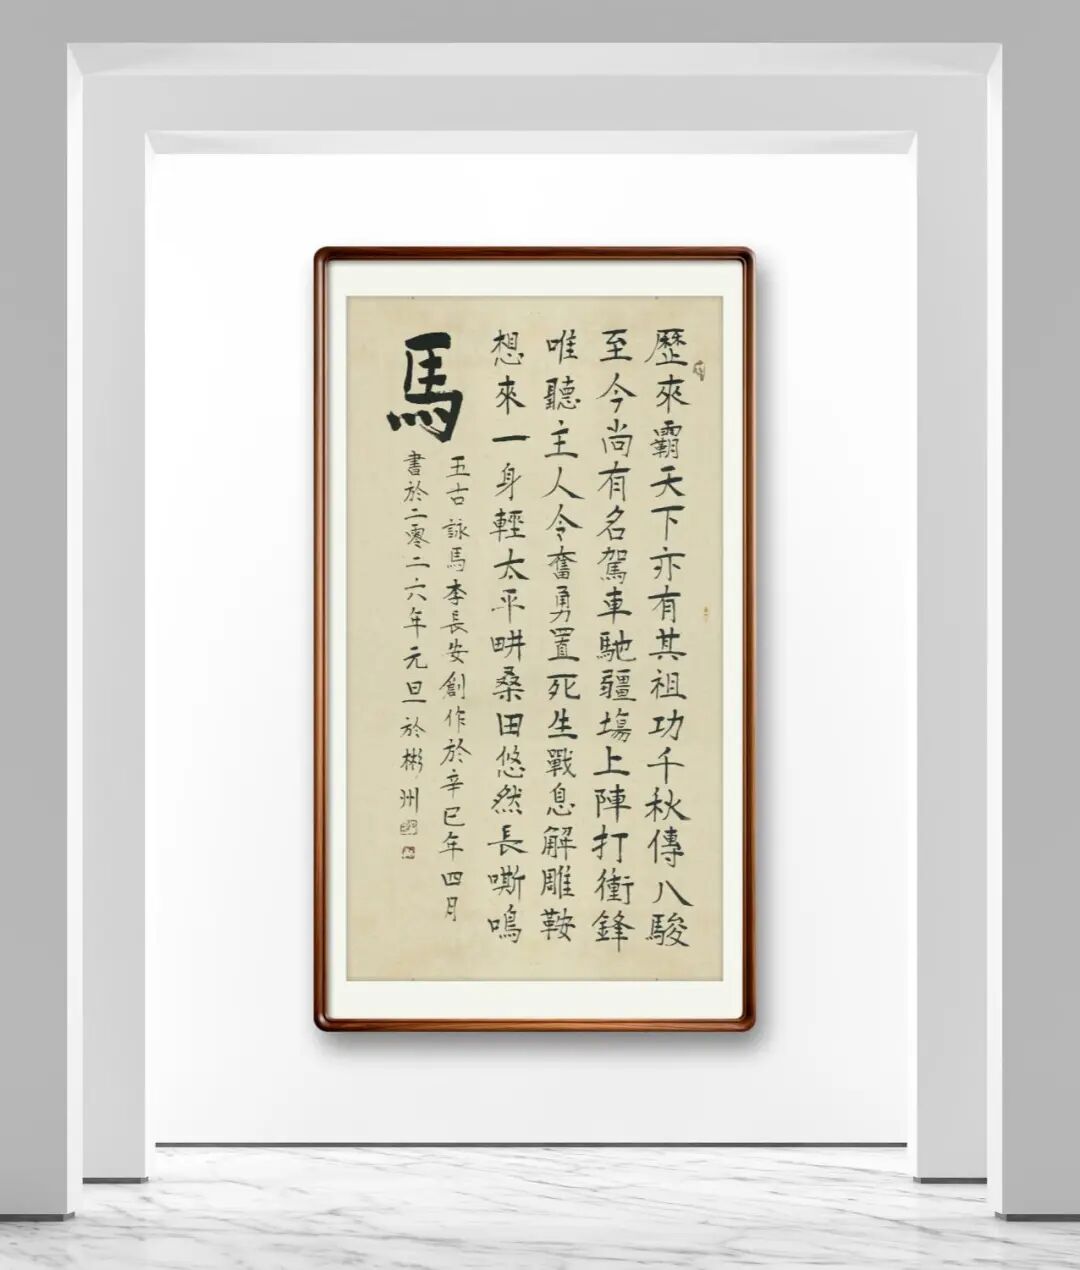 歷來霸天下亦有其祖功千秋傳八駿
至今尚有名駕車馳疆塲上陣打衝鋒
唯聽主人令奮勇置死生戰息解雕鞍
想來一身輕太平畊桑田悠然長嘶鳴
馬
五古詠馬李長安創作於辛巳年四月
書於二零二六年元旦於彬州